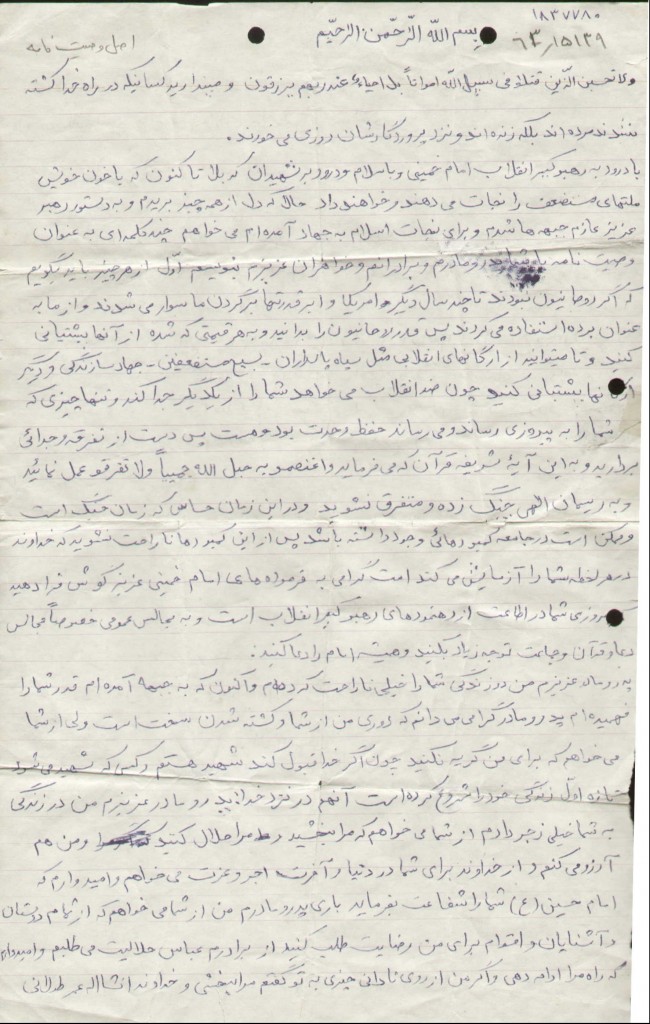 ۱۸۳۷۷۸۰
بسم اللّه الرّحمن الرّحیم
۶۳/۱۵۱۳۹
اصل وصیت نامه
ولا تحسبن الّذین قتلوا فی سبیل اللّه امواتاً بل احیاءٌ عند ربهم یرزقون و مپندارید کسانیکه در راه خدا کشته
شدند مرده اند بلکه زنده اند و نزد پروردگارشان روزی می خورند.
با درود به رهبر کبیر انقلاب امام خمینی و با سلام و درود بر شهیدان کربلا تا کنون که با خون خویش
ملتهای مستضعف را نجات می دهند و خواهند داد حال که دل از همه چیز بریدم و به دستور رهبر
عزیز عازم جبهه ها شدم و برای نجات اسلام به جهاد آمده ام می خواهم چند کلمه ای به عنوان
وصیت نامه با شما پدر و مادرم و برادرانم و خواهران عزیزم بنویسم اوّل از هر چیز باید بگویم
که اگر روحانیون نبودند تا چند سال دیگر آمریکا و ابر قدرتها بر گردن ما سوار می شدند و از ما به
عنوان برده استفاده می کردند پس قدر روحانیون را بدانید و به هر قیمتی که شده از آنها پشتیبانی
کنید و تا میتوانید از ارگانهای انقلابی مثل سپاه پاسداران - بسیج مستضعفین - جهاد سازندگی و دیگر
ارگانها پشتیبانی کنید چون ضد انقلاب می خواهد شما را از یکدیگر جدا کند و تنها چیزی که
شما را به پیروزی رساند و می رساند حفظ وحدت بود و هست پس دست از تفرقه و جدائی
بردارید و به این آیهٔ شریفه قرآن که می فرماید واعتصمو به حبل الله جمیعاً ولا تفرقو عمل نمائید
و به ریسمان الهی چنگ زده و متفرق نشوید و در این زمان حساس که زمان جنگ است
و ممکن است در جامعه کمبودهائی وجود داشته باشد پس از این کمبودها ناراحت نشوید که خداوند
در هر لحظه شما را آزمایش می کند امت گرامی به فرموده های امام خمینی عزیز گوش فرا دهید
که پیروزی شما در اطاعت از رهنمودهای رهبر کبیر انقلاب است و به مجالس عمومی خصوصاً مجالس
دعا و قرآن و جماعت توجه زیاد بکنید و همیشه امام را دعا کنید.
پدر و مادر عزیزم من در زندگی شما را خیلی ناراحت کرده ام و اکنون که به جبهه آمده ام قدر شما را
فهمیده ام پدر و مادر گرامی می دانم که دوری من از شما و کشته شدن سخت است ولی از شما
می خواهم که برای من گریه نکنید چون اگر خدا قبول کند شهید هستم و کسی که شهید می شود
تازه اوّل زندگی خود را شروع کرده است آنهم در نزد خدا پدر و مادر عزیزم من در زندگی
به شما خیلی زجر دادم از شما می خواهم که مرا ببخشید و مرا حلال کنید و من هم
آرزو می کنم و از خداوند برای شما در دنیا و آخرت اجر و عزت می خواهم و امیدوارم که
امام حسین (ع) شما را شفاعت بفرماید باری پدر و مادرم من از شما می خواهم که از تمام دوستان
و آشنایان و اقوام برای من رضایت طلب کنید از برادرم عباس حلالیت می طلبم و امیدوارم
که راه مرا ادامه دهی و اگر من از روی نادانی چیزی به تو گفتم مرا ببخشی و خداوند انشااله عمر طولانی